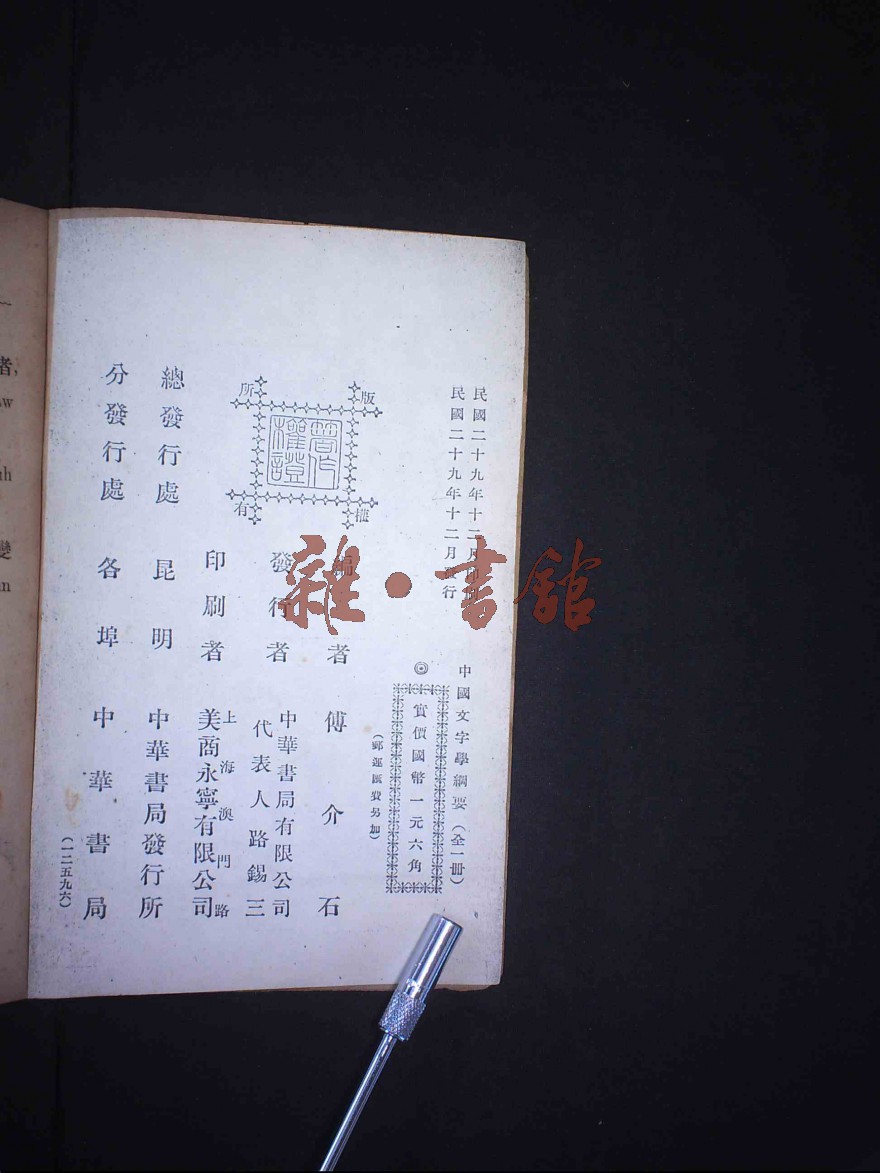 民國二十九年十二月印刷
民國二十九年十二月發行
中國文字學綱要（全一冊）
◎
實價國幣一元六角
（郵運匯費另加）
版權所有
著作權證
編者 傅介石
發行者 中華書局有限公司
代表人路錫三
印刷者 上海澳門路
美商永寧有限公司
總發行處 昆明 中華書局發行所
分發行處 各埠 中華書局
（一二五九六）
雜·書館
者,
變